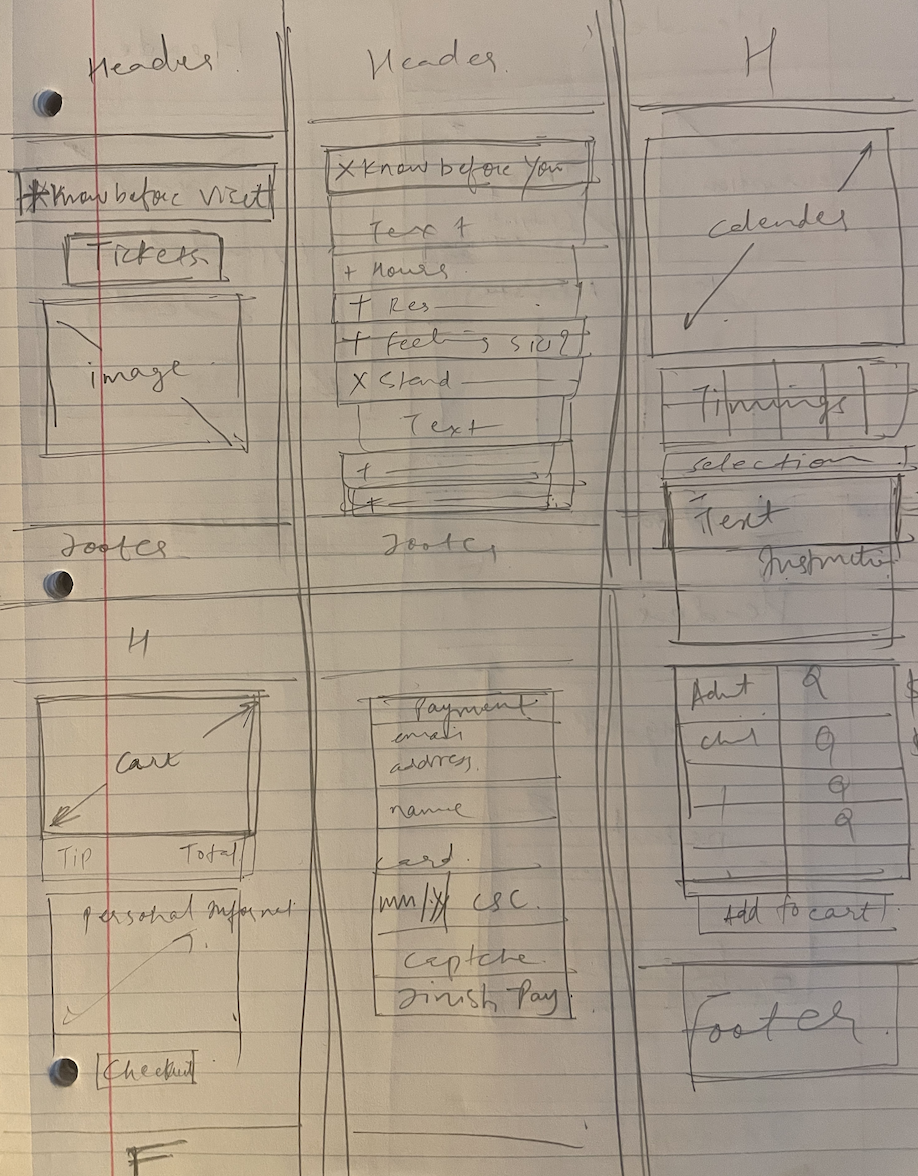 Header
*Know before visit
Tickets
image
Footer
Header
X Know before You
Text
+ Hours
+ Res
+ Feeling sick?
X Stand
Text
+
+
Footer
H
Calender
Timings
selection
Text
Instructi
Adult Q $
Chil Q $
Q
Q
Add to cart
Footer
H
Cart
Tip Total
Personal Informat
Checkout
F
Payment
email
address
name
card
mm/yy csc
Captche
Finish Pay